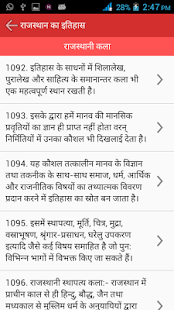 2:47 PM
राजस्थान का इतिहास
राजस्थानी कला
1092. इतिहास के साधनों में शिलालेख,
पुरालेख और साहित्य के समानान्तर कला भी
एक महत्वपूर्ण स्थान रखती है।
1093. इसके द्वारा हमें मानव की मानसिक
प्रवृतियों का ज्ञान ही प्राप्त नहीं होता वरन्
निर्मितियों में उनका कौशल भी दिखलाई देता है।
1094. यह कौशल तत्कालीन मानव के विज्ञान
तथा तकनीक के साथ-साथ समाज, धर्म, आर्थिक
और राजनीतिक विषयों का तथ्यात्मक विवरण
प्रदान करने में इतिहास का स्रोत बन जाता है।
1095. इसमें स्थापत्या, मूर्ति, चित्र, मुद्रा,
वस्त्राभूषण, श्रृंगार-प्रसाधन, घरेलु उपकरण
इत्यादि जैसे कई विषय समाहित है जो पुन:
विभिन्न भागों में विभक्त किए जा सकते हैं।
1096. राजस्थानी स्थापत्य कला:- राजस्थान में
प्राचीन काल से ही हिन्दु, बौद्ध, जैन तथा
मध्यकाल से मुस्लिम धर्म के अनुयायियों द्वारा